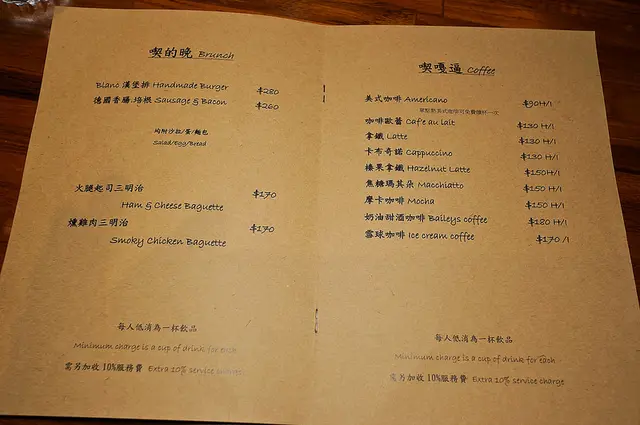 喫的晚 Brunch
Blanc 漢堡排 Handmade Burger $280
德國香腸.培根 Sausage & Bacon $260
均附沙拉/蛋/麵包
Salad/Egg/Bread
火腿起司三明治 $170
Ham & Cheese Baguette
燻雞肉三明治 $170
Smoky Chicken Baguette
每人低消為一杯飲品
Minimum charge is a cup of drink for each
需另加收 10%服務費 Extra 10% service charge
喫嘎逼 Coffee
美式咖啡 Americano $90H/I
咖啡歐蕾 Cafe au lait $130 H/I
拿鐵 Latte $130 H/I
卡布奇諾 Cappuccino $130 H/I
榛果拿鐵 Hazelnut Latte $150H/I
焦糖瑪其朵 Macchiatto $150 H/I
摩卡咖啡 Mocha $150 H/I
奶油甜酒咖啡 Baileys coffee $180 H/I
雪球咖啡 Ice cream coffee $170 /I
每人低消為一杯飲品
Minimum charge is a cup of drink for each
需另加收 10%服務費 Extra 10% service charge